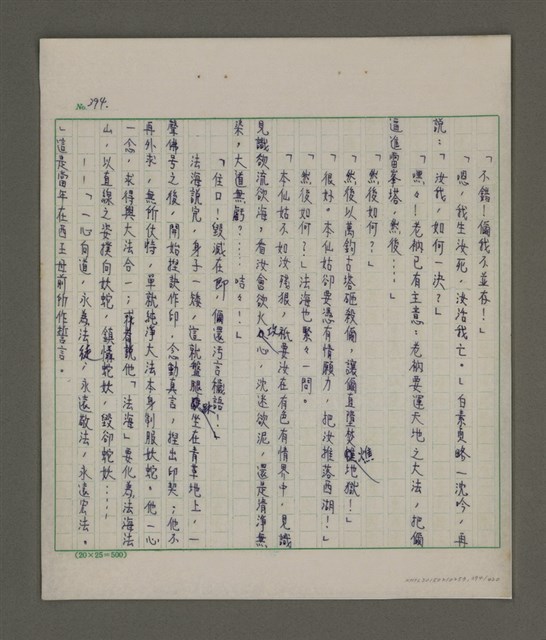 No. 394.
「不錯！偏我不並存！」
「嗯，我生汝死，汝活我亡。」白素貞略一沈吟，再
說：「汝我，如何一決？」
「嘿々！老衲已有主意：老衲要運天地之大法，把偏
逼進雷峯塔，然後⋯⋯」
「然後如何？」
「然後以萬鈞古塔砸殺偏，讓偏直墮焚燋地獄！」
「很好。本仙姑卻要憑有情願力，把汝推落西湖！」
「然後如何？」法海也緊々一問。
「本仙姑不如汝陰狠，祇要汝在有色有情界中，見識
見識欲流欲海，看汝會欲火攻心，沈迷欲泥，還是清淨無
染，大道無虧？⋯⋯咭々！」
「住口！毀滅在即，偏還污言穢語！」
法海說完，身子一矮，這就盤腿趺坐在青草地上，一
聲佛号之後，開始捏訣作印，念動真言，捏出印契；他不
再外求，無所仗恃，單就純淨大法本身制服妖蛇。他一心
一念，求得與大法合一；或者說他「法海」要化為法海法
山，以直線之姿撲向妖蛇，鎮懾妖蛇，毀卻妖蛇⋯⋯
——「一心向道，永為法徒，永遠敬法，永遠宏法。
」這是當年在西王母前所作誓言。
(20×25=500)